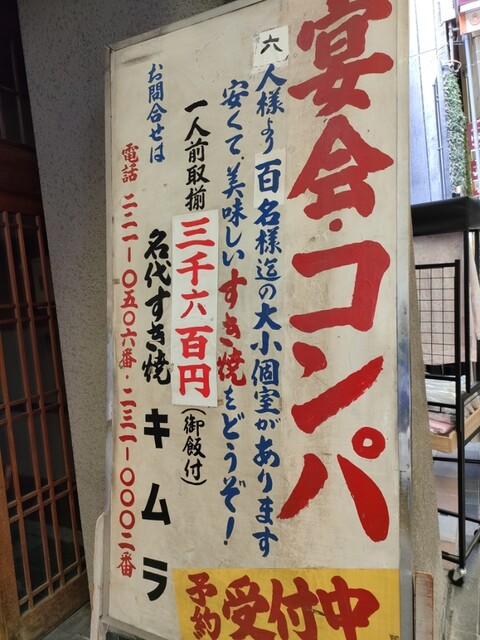 宴会・コンパ
六人様より百名様迄の大小個室があります
安くて美味しいすき焼をどうぞ!
一人前取揃三千六百円(御飯付)
名代すき焼キムラ
お問合せは
電話二二一-〇五〇六番・二三一-〇〇〇二番
予約受付中